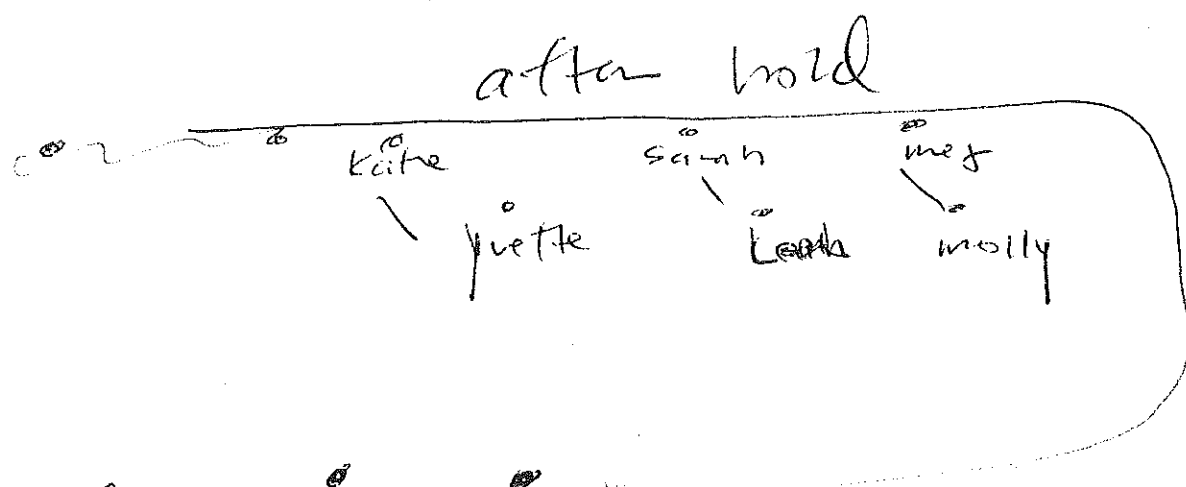 after hold
Katie Sarah meg
yvette Leah molly